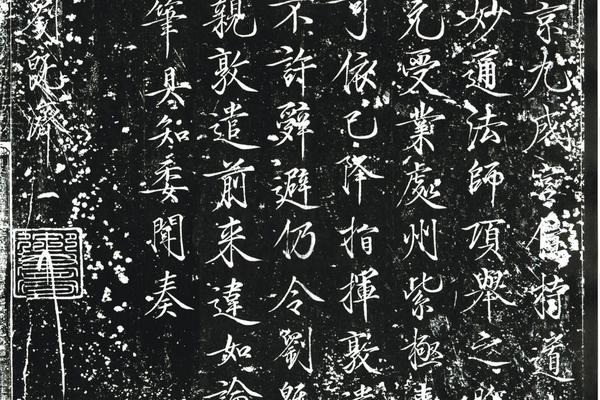 京九成宮住持道
妙通法師項舉之
充受業處州紫極
可依已降指揮敦遣
不許辭避仍令劉既
親敦遣前来違如論
筆具知委聞奏
劉既濟